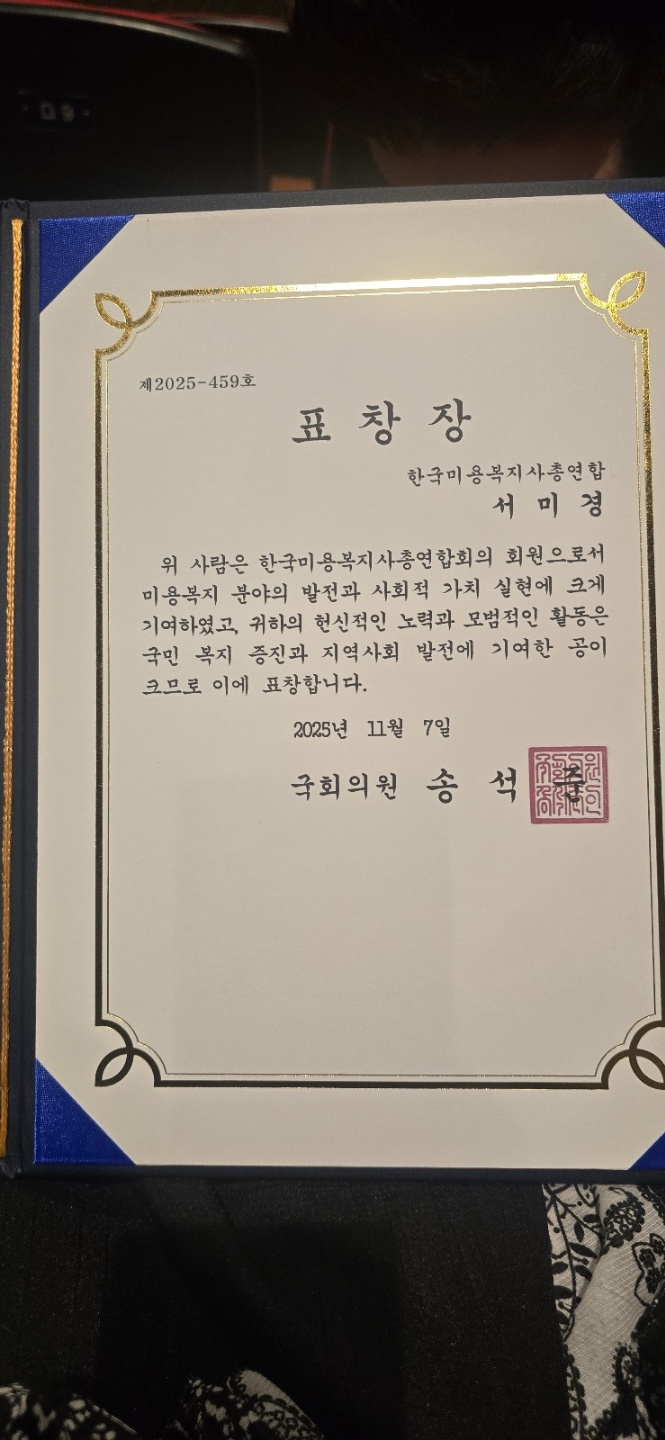 제2025-459호
표 창 장
한국미용복지사총연합
서 미 경
위 사람은 한국미용복지사총연합회의 회원으로서
미용복지 분야의 발전과 사회적 가치 실현에 크게
기여하였고, 귀하의 헌신적인 노력과 모범적인 활동은
국민 복지 증진과 지역사회 발전에 기여한 공이
크므로 이에 표창합니다.
2025년 11월 7일
국회의원 송 석 준